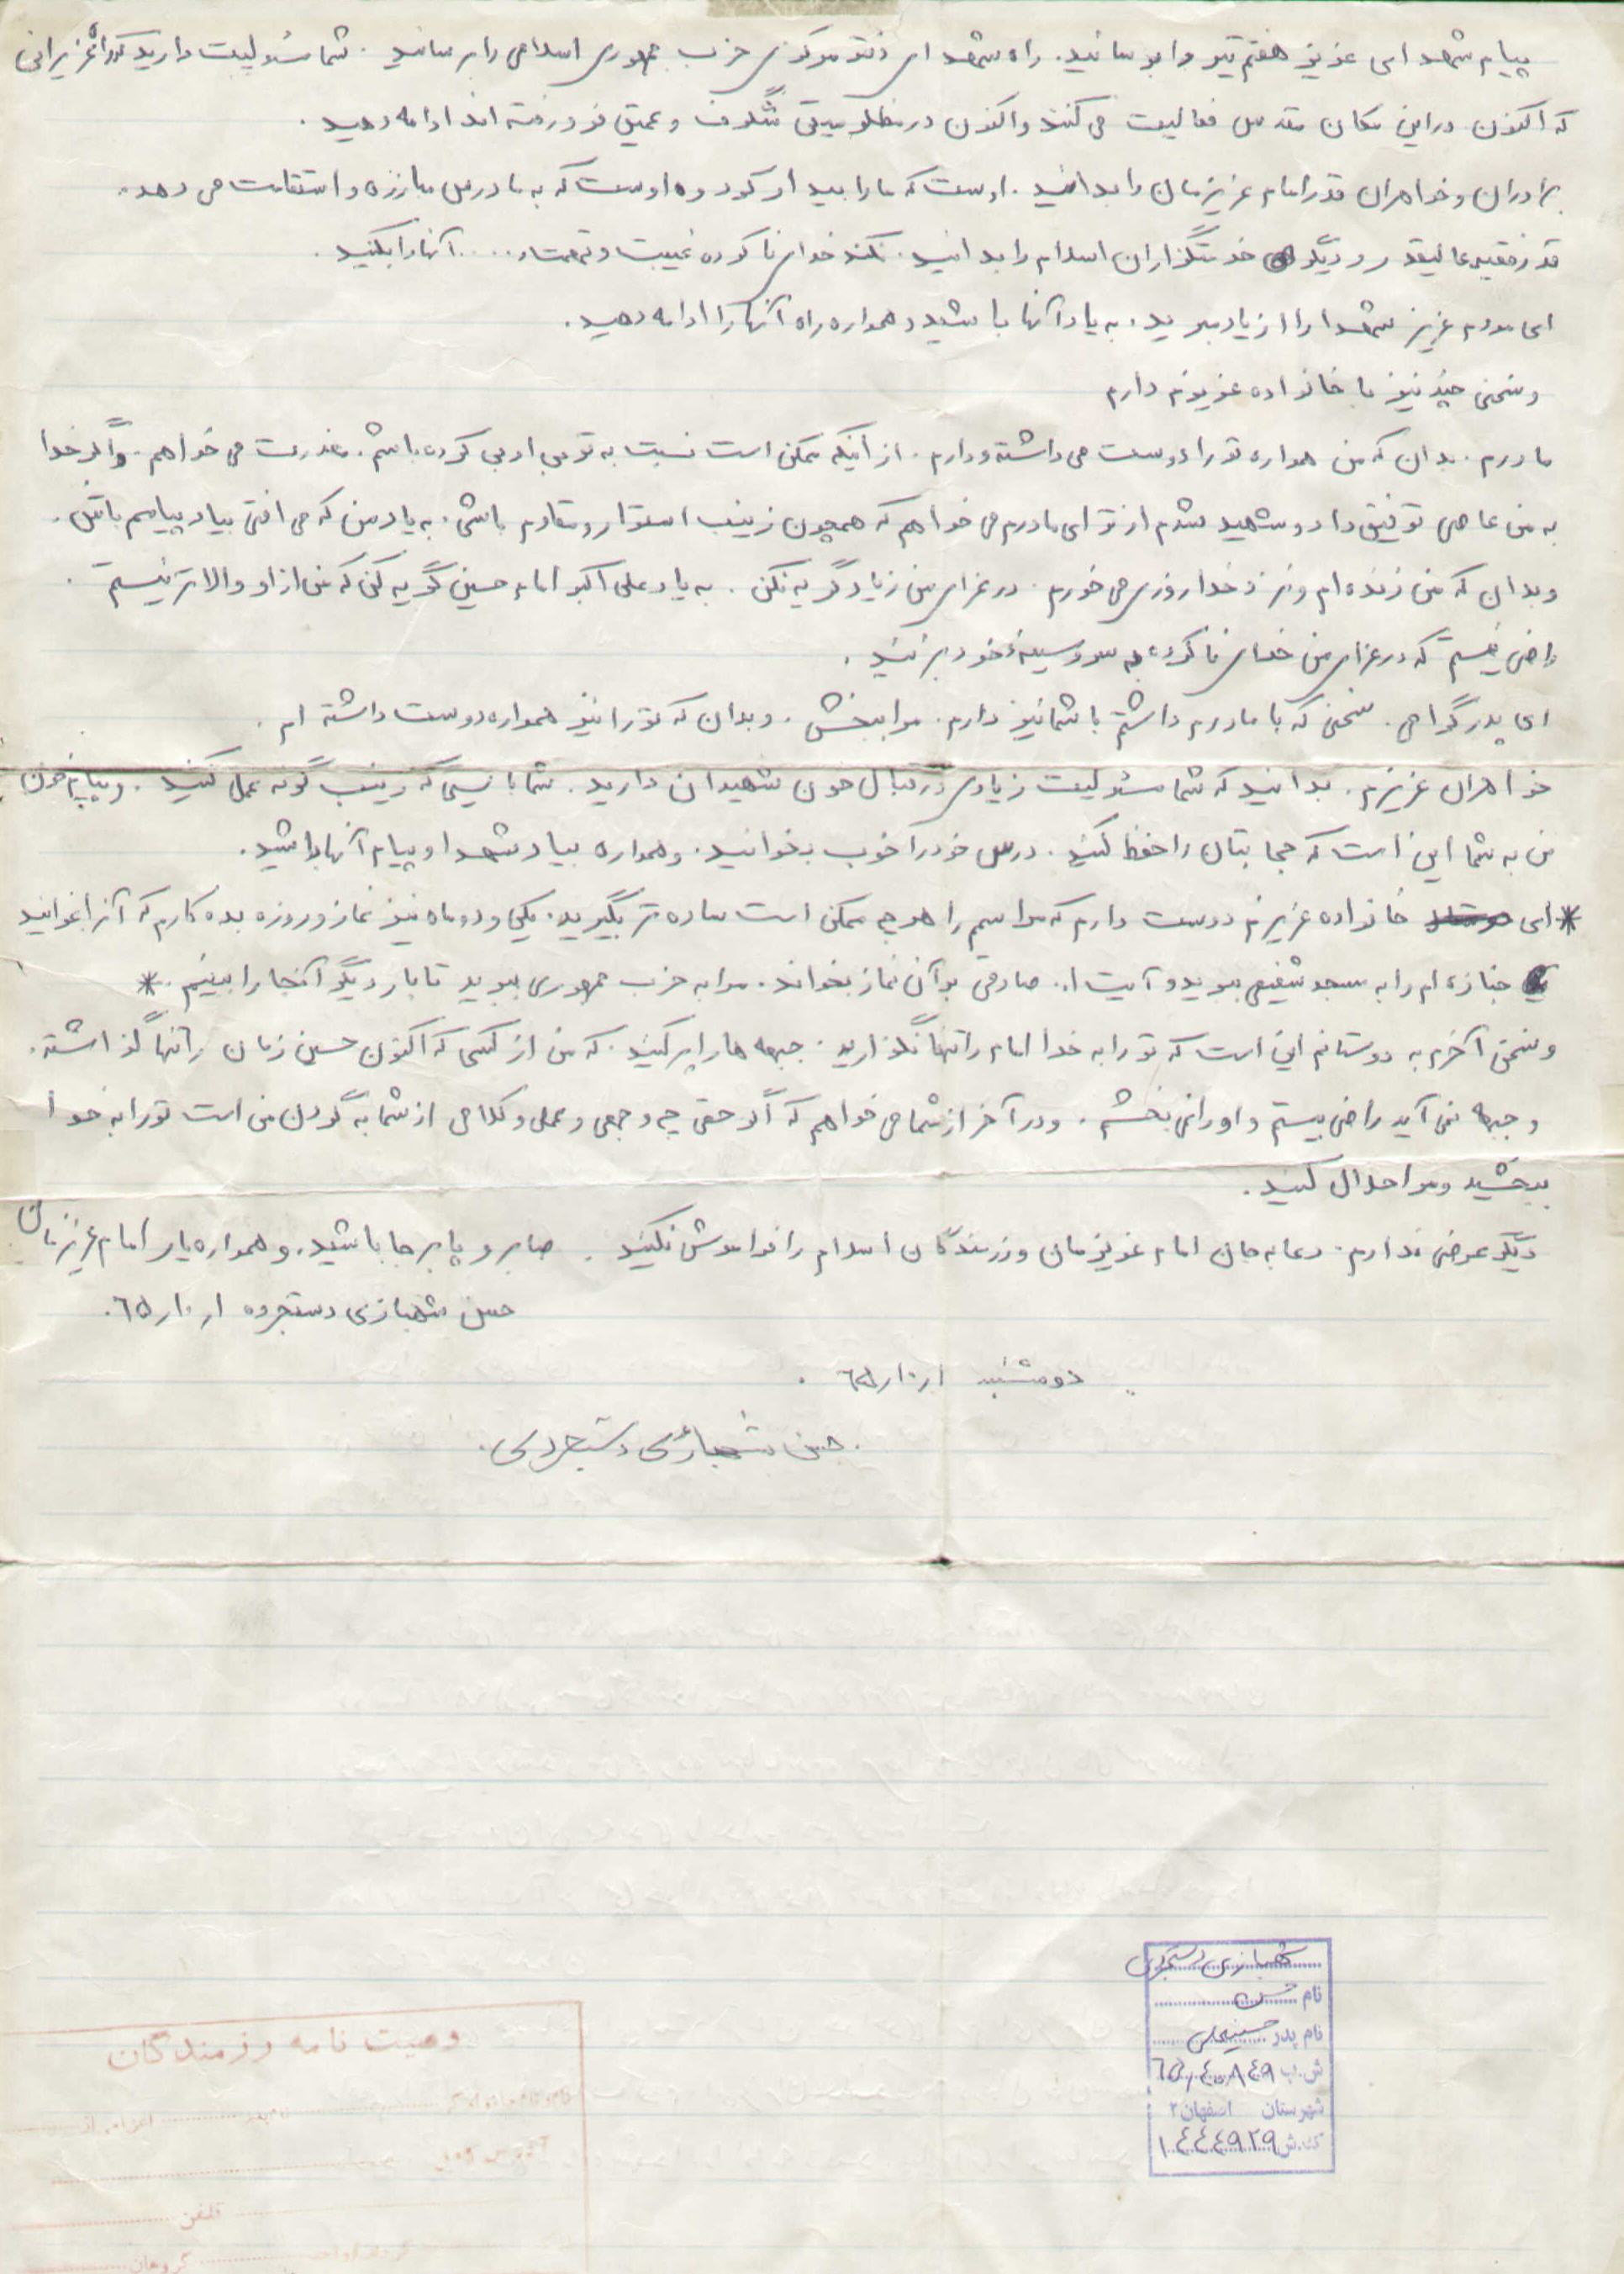 پیام شهدای عزیز هفتم تیر را برسانید. راه شهدای دفتر مرکزی حزب جمهوری اسلامی را برسانید. شما مسئولیت دارید که راه عزیزانی
که اکنون در این مکان مقدس فعالیت می کنند و اکنون در مظلومیتی شگرف و عمیق فرو رفته اند ادامه دهید.
برادران و خواهران قدر امام عزیزمان را بدانید. اوست که ما را بیدار کرد و اوست که به ما درس مبارزه و استقامت می دهد.
قدر فقیه عالیقدر و دیگر خدمتگزاران اسلام را بدانید. نکند خدای ناکرده غیبت و تهمت و.... آنها را بکنید.
ای مردم عزیز شهدا را از یاد مبرید. به یاد آنها باشید و همواره راه آنها را ادامه دهید.
و سخنی چند نیز با خانواده عزیزم دارم
مادرم. بدان که من همواره تو را دوست می داشته و دارم. از اینکه ممکن است نسبت به تو بی ادبی کرده باشم. معذرت می خواهم. و اگر خدا
به من عاصی توفیق داد و شهید شدم از تو ای مادرم می خواهم که همچون زینب استوار و مقاوم باشی. به یاد من که می افتی بیاد پیامم باش.
و بدان که من زنده ام و نزد خدا روزی می خورم. در عزای من زیاد گریه نکن. به یاد علی اکبر امام حسین گریه کن که من از او والاتر نیستم.
راضی نیستم که در عزای من خدای ناکرده به سر و سینهٔ خود بزنید.
ای پدر گرامی. سخنی که با مادرم داشتم با شما نیز دارم. مرا ببخش. و بدان که تو را نیز همواره دوست داشته ام.
خواهران عزیزم. بدانید که شما مسئولیت زیادی در قبال خون شهیدان دارید. شما بایستی که زینب گونه عمل کنید. و پیام خون
من به شما این است که حجابتان را حفظ کنید. درس خود را خوب بخوانید. و همواره بیاد شهدا و پیام آنها باشید.
* ای خانواده عزیزم دوست دارم که مراسم را هر چه ممکن است ساده تر بگیرید. یکی و دو ماه نیز نماز و روزه بده کارم که آنرا بخوانید
جنازه ام را به مسجد شفیعی ببرید و آیت ا.. صادقی بر آن نماز بخواند. مرا به حزب جمهوری ببرید تا بار دیگر آنجا را ببینم. *
و سخن آخرم به دوستانم این است که تو را به خدا امام را تنها نگذارید. جبهه ها را پر کنید. که من از کسی که اکنون حسین زمان را تنها گذاشته.
و جبهه نمی آید راضی نیستم و او را نمی بخشم. و در آخر از شما می خواهم که اگر حقی چه و جمعی و عملی و کلامی از شما به گردن من است تو را به خدا
ببخشید و مرا حلال کنید.
دیگر عرضی ندارم. دعا به جان امام عزیزمان و رزمندگان اسلام را فراموش نکنید. صابر و پابرجا باشید. و همواره یار امام عزیزمان
حسن شهبازی دستجرده ۱ر۱۰ر٦۵.
دوشنبه ۱ر۱۰ر٦۵.
حسن شهبازی دستجردی.
شهبازی دستجردی
نام حسن
نام پدر حسینعلی
ش.پ
شهرستان اصفهان ۲
کد.ش ۱٤٤٤۹۲۹
وصیت نامه رزمندگان
تلفن